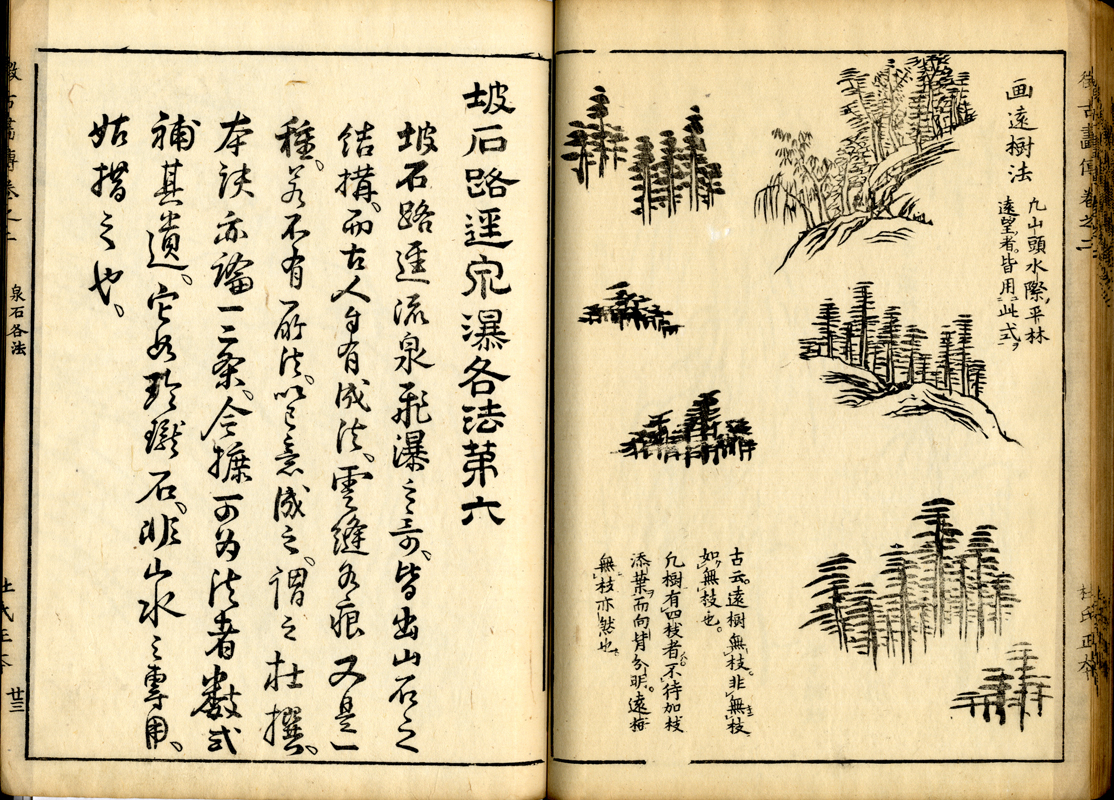 徴古畫傳卷之二
杜氏正本
画遠樹法
凡山頭水際平林
遠望者皆用此式
古云遠樹無枝。非無枝
如無枝也。
凡樹有四枝者。不待加枝
添葉而向背分明。遠樹
無枝亦然也
坡石路逕泉瀑各法第六
坡石路逕流泉飛瀑之奇、皆出山石之
結搆。而古人自有成法、雲縫石痕又是一
種、若不有所法、以己意成之、謂之杜撰。
本訣亦論一二条、今據可为法者數式
補其遺。它如玲瓏石、非山水之專用、
姑措之也。
泉石各法
廿三